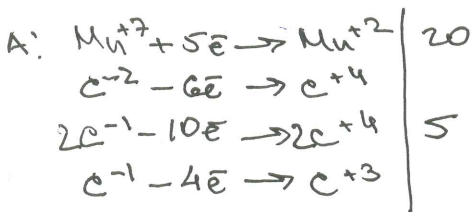 A: Mn⁺⁷ + 5ē → Mn⁺² | 20
c⁻² – 6ē → c⁺⁴
2c⁻¹ – 10ē → 2c⁺⁴ | 5
c⁻¹ – 4ē → c⁺³